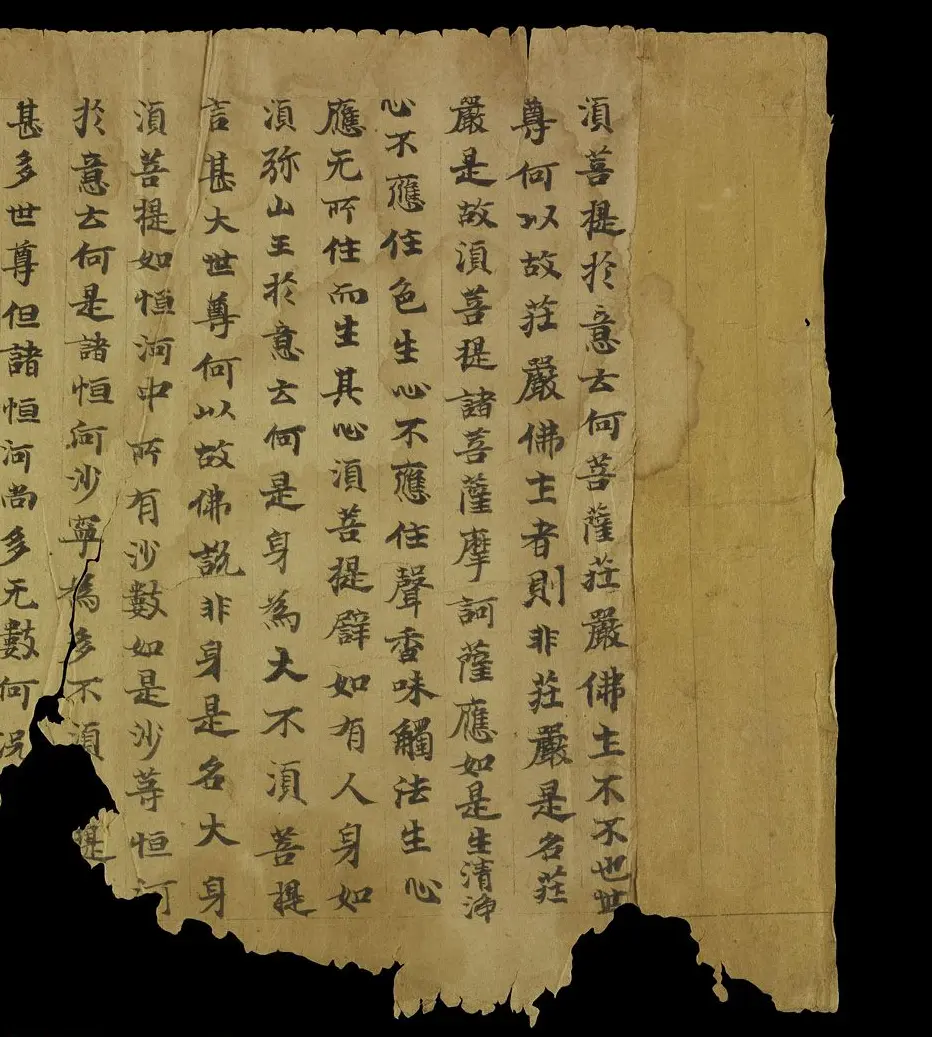 湏菩提扵意云何菩薩莊嚴佛土不不也世
尊何以故莊嚴佛土者則非莊嚴是名莊
嚴是故湏菩提諸菩薩摩訶薩應如是生清淨
心不應住色生心不應住聲香味觸法生心
應无所住而生其心湏菩提辟如有人身如
湏弥山王扵意云何是身為大不湏菩提
言甚大世尊何以故佛說非身是名大身
湏菩提如恒河中所有沙數如是沙等恒河
扵意云何是諸恒河沙寧為多不湏提
甚多世尊但諸恒河尚多无數何況